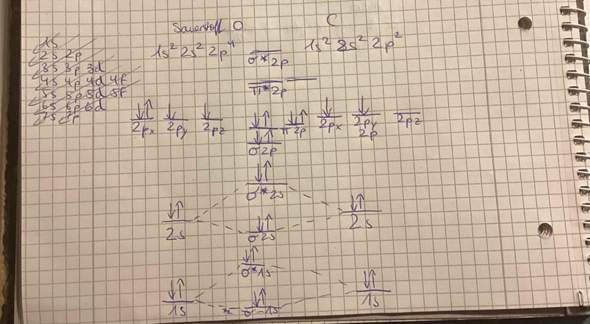 Sauerstoff O C
1s
2s 2p
3s 3p 3d
4s 4p 4d 4f
5s 5p 5d 5f
6s 6p 6d
7s 7p
1s² 2s² 2p⁴ 1s² 2s² 2p²
σ*2p
π*2p
2px 2py 2pz π2p 2px 2py 2pz
σ2p 2p
σ*2s
2s σ2s 2s
σ*1s
1s σ1s 1s